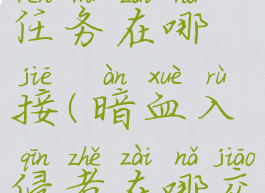 任务在哪
jiē àn xuè rù
接(暗血入
qīn zhě zài nǎ jiāo
侵者在哪交